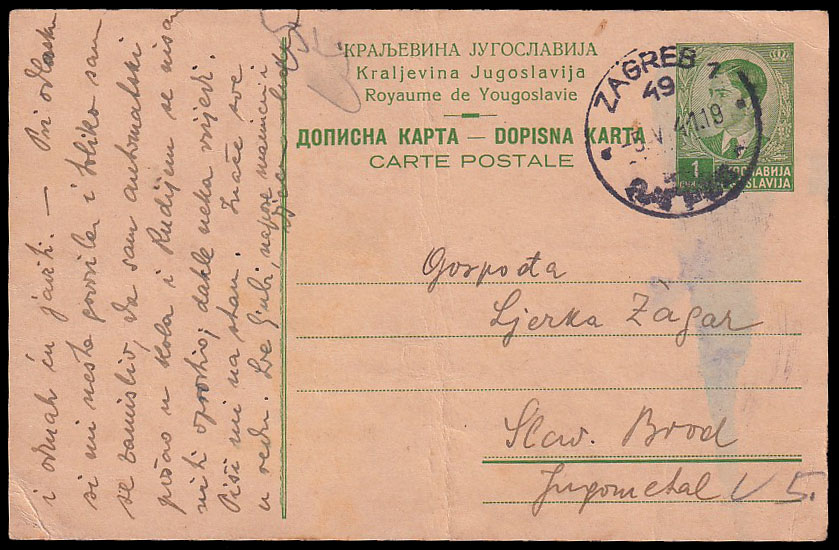 КРАЉЕВИНА ЈУГОСЛАВИЈА
Kraljevina Jugoslavija
Royaume de Yougoslavie
ДОПИСНА КАРТА — DOPISNA KARTA
CARTE POSTALE
ZAGREB 7
49
V. 41.18
1
ЈУГОСЛАВИЈА
JUGOSLAVIJA
Gospođa
Ljerka Žagar
Slav. Brod
Jugometal
5.
i odmah ću javiti. — Pri odlasku
si mi nešto govorila i toliko sam
se zamislio, da sam automatski
pošao u kola i Rudijem se nisam
niti oprostio; dakle neka vrijedi.
Piši mi na stan. Inače sve
u redu. Sve ljubi, najviše mamicu i